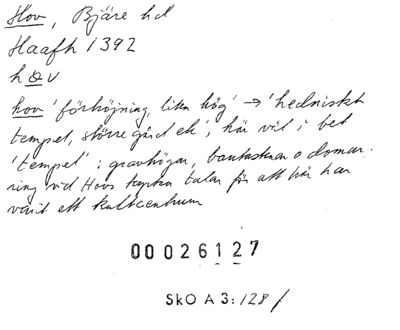 Hov, Bjäre hd
Haafh 1392
hov
hov 'förhöjning, liten hög' → 'hedniskt
tempel, större gård etc', här väl i bet
'tempel'; gravhögar, bautastenar o domar-
ring vid Hovs kyrka talar för att här har
varit ett kultcentrum
00026127
SkO A 3:128/